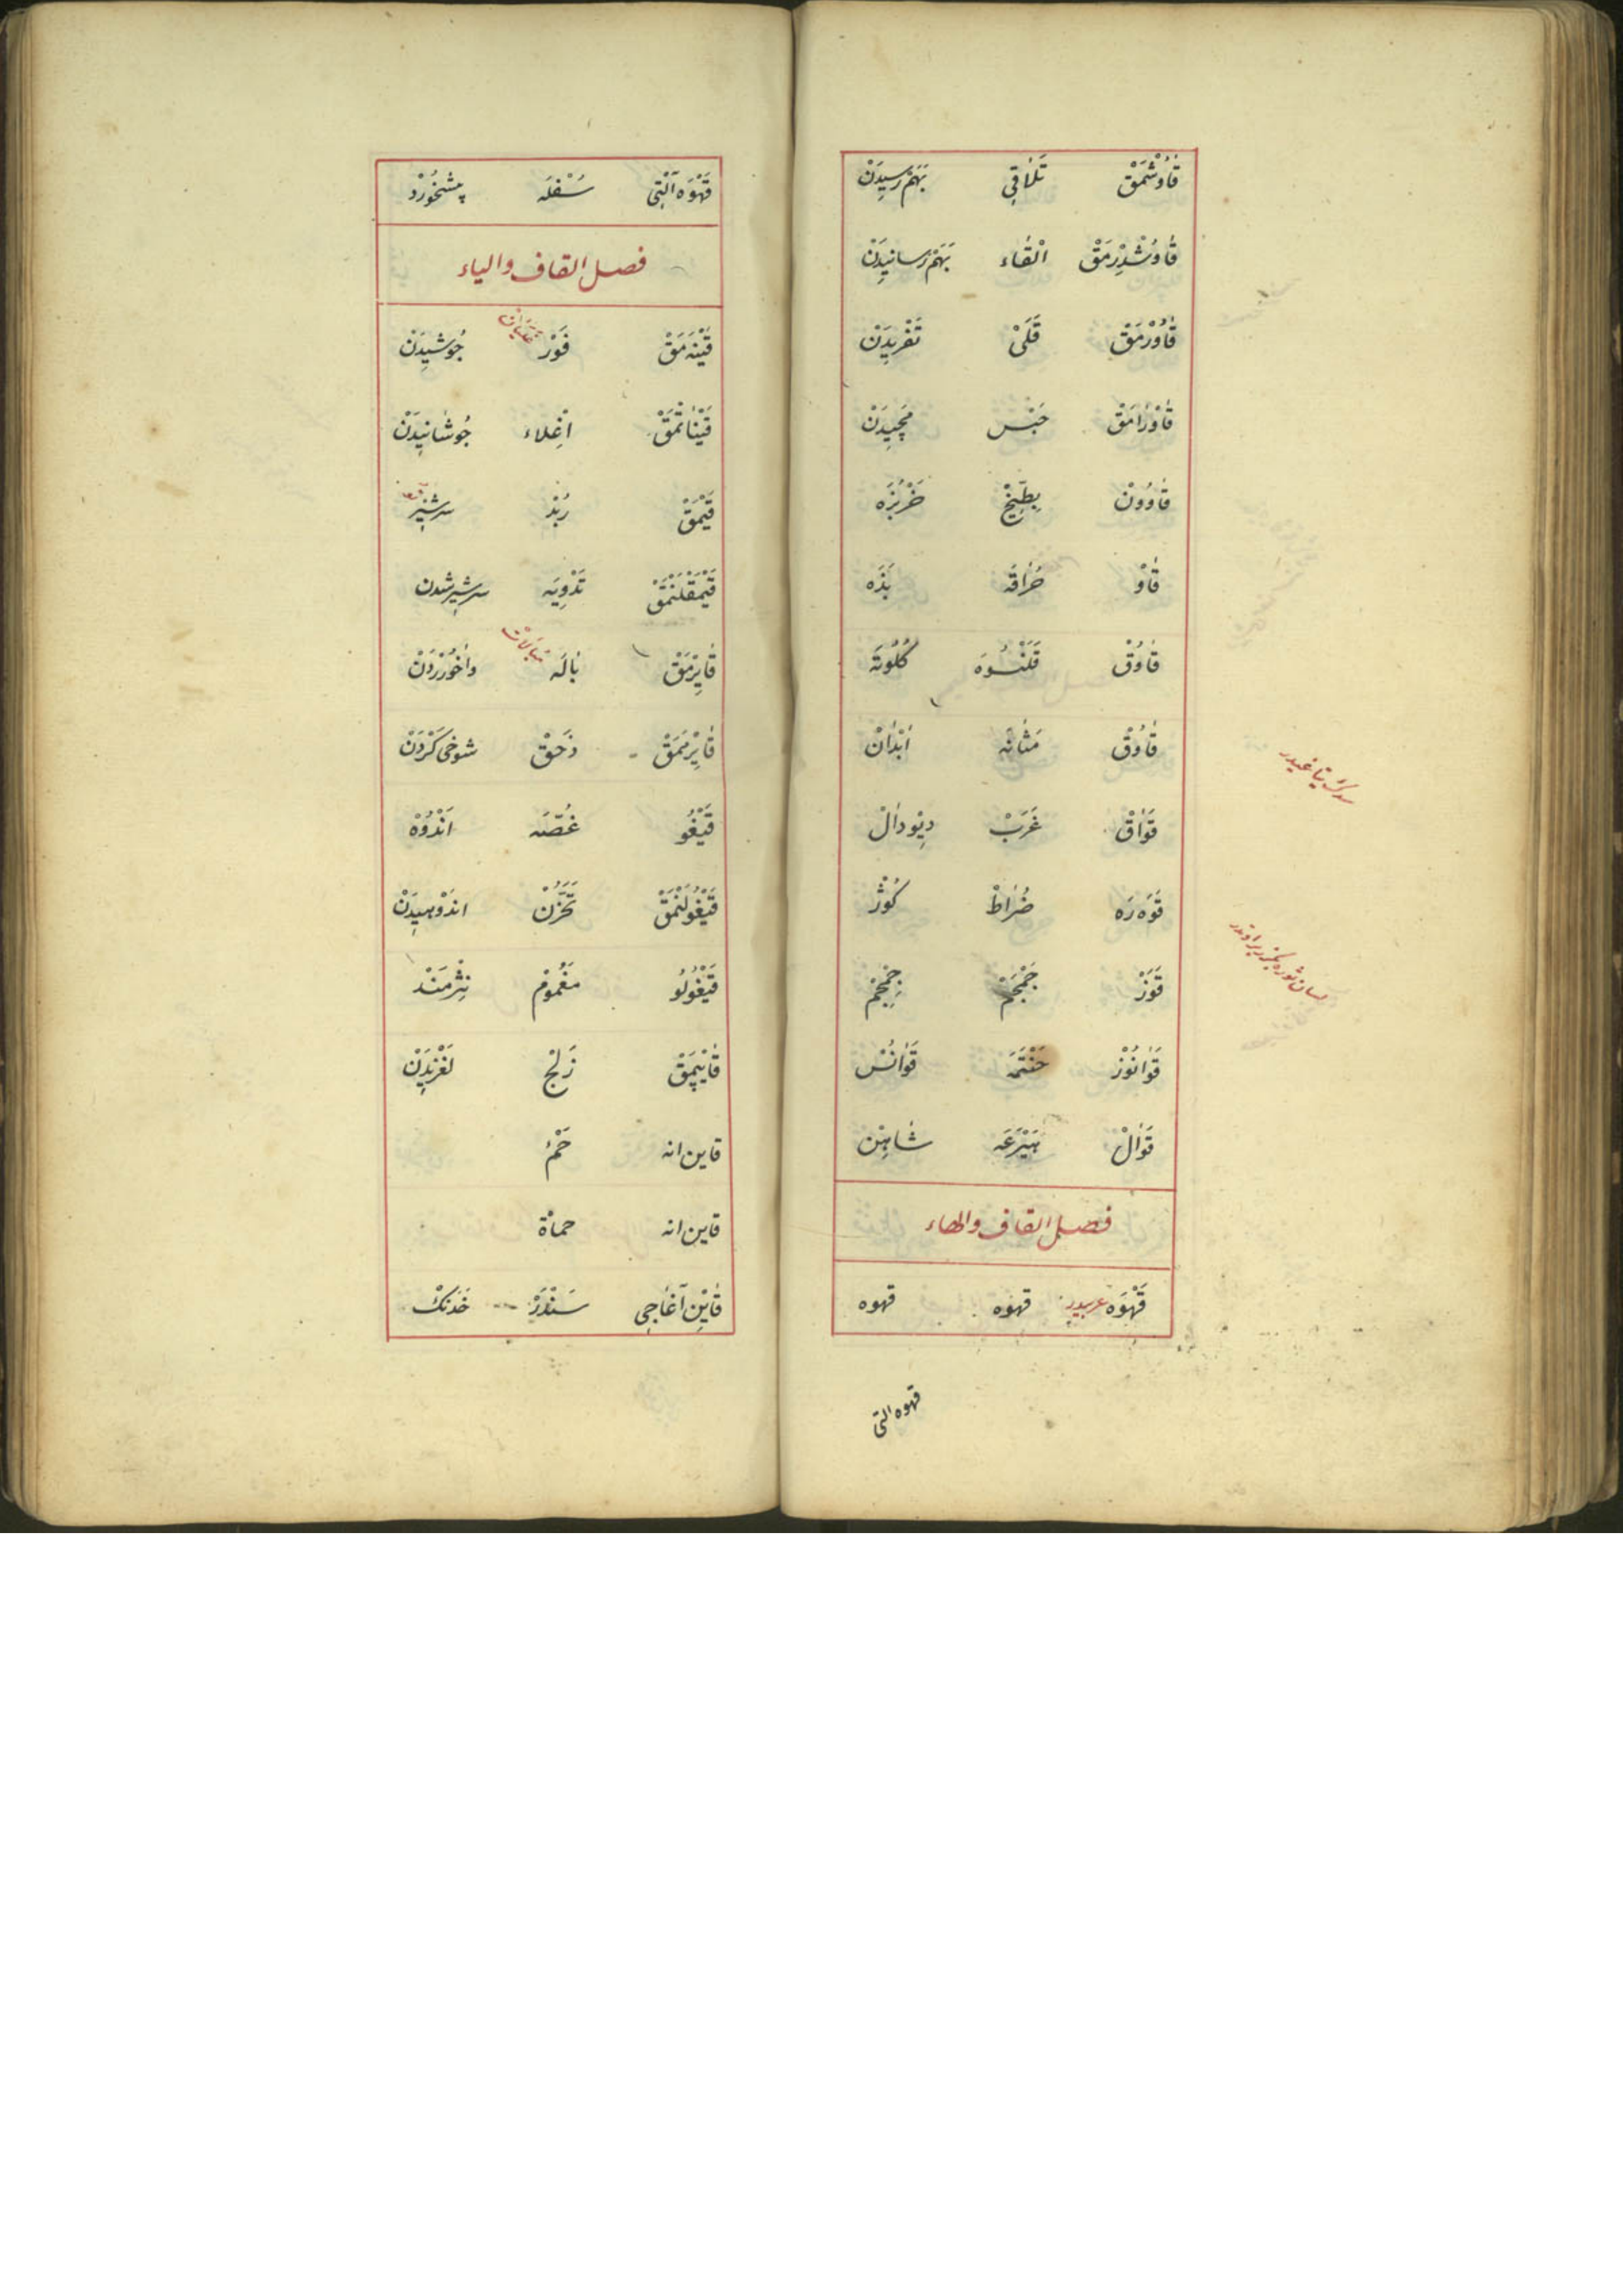 قَاوُشْمَقْ تَلَاقِي بَهَمْ رَسِيدَنْ
قَاوُشْدِرْمَقْ الْقَاء بَهَمْ رَسانِيدَنْ
قَاوُرْمَقْ قَلَىْ تَفْرِيدَنْ
قَاوْرَامَقْ حَبْس مَچِيدَنْ
قَاوُونْ بِطِّيخْ خَرْبُزَه
قَاوْ حُرَاقَه بَدَه
قَاوُقْ قَلَنْسُوَه كُلُوتَه
قَاوُقْ مَثَانَه اَبْدَانْ
سدك يتاغيدر
قَوَاقْ غَرَبْ دِيْودَالْ
قَوَه رَه ضُرَاطْ كُوزْ
قَوَزْ جَمْجَمْ جِمْجِمْ
قَوَانُوزْ حَنْتَمَه قَوَانُسْ
قَوَالْ هَيْرَعَه شَاهِيْن
فصل القاف والهاء
قَهْوَه عربيدر قهوه قهوه
قهوه التى
قَهْوَه آلْتِى سُفْلَه پِشْخُورْد
فصل القاف والياء
قَيْنَه مَقْ فَوْر غَلَيَانْ جُوشِيدَنْ
قَيْنَاتْمَقْ اِغْلاء جُوشَانِيدَنْ
قَيْمَقْ زُبْد سرشير
قَيْمَقْلَنْمَقْ تَدْوِيَه سرشير شدن
قَايِرْمَقْ بَالَه مبالات وَاخُورْدَنْ
قَايِرْمَمَقْ ذَحَقْ شوخى كَرْدَنْ
قَيْغُو غُصَّه اَنْدُوْه
قَيْغُولَنْمَقْ تَحَزُّنْ اندوهيدن
قَيْغُولُو مَغْمُومْ نِژْمَنْد
قَايْپِمَقْ زَلْج لَغْزِيدَنْ
قاين انه حَمْء
قاين انه حماة
قَايِنْ آغَاجِى سَنْدَرْ خَدَنْكْ